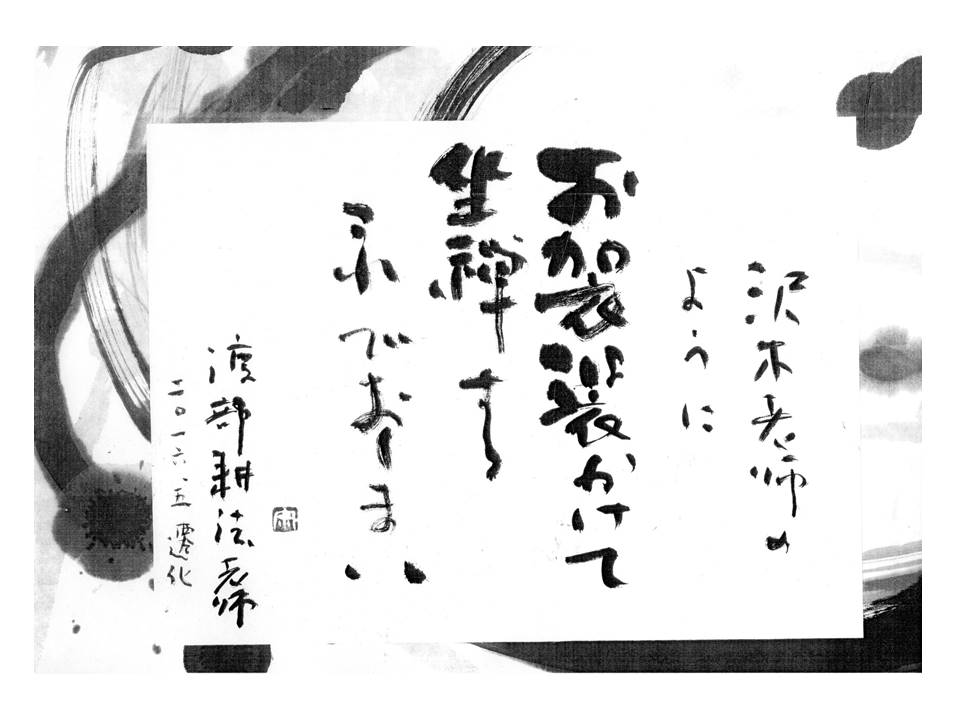 沢木老師の
ように
お袈裟かけて
坐禅する
それでおしまい
渡部耕法老師
二〇一六.五 遷化